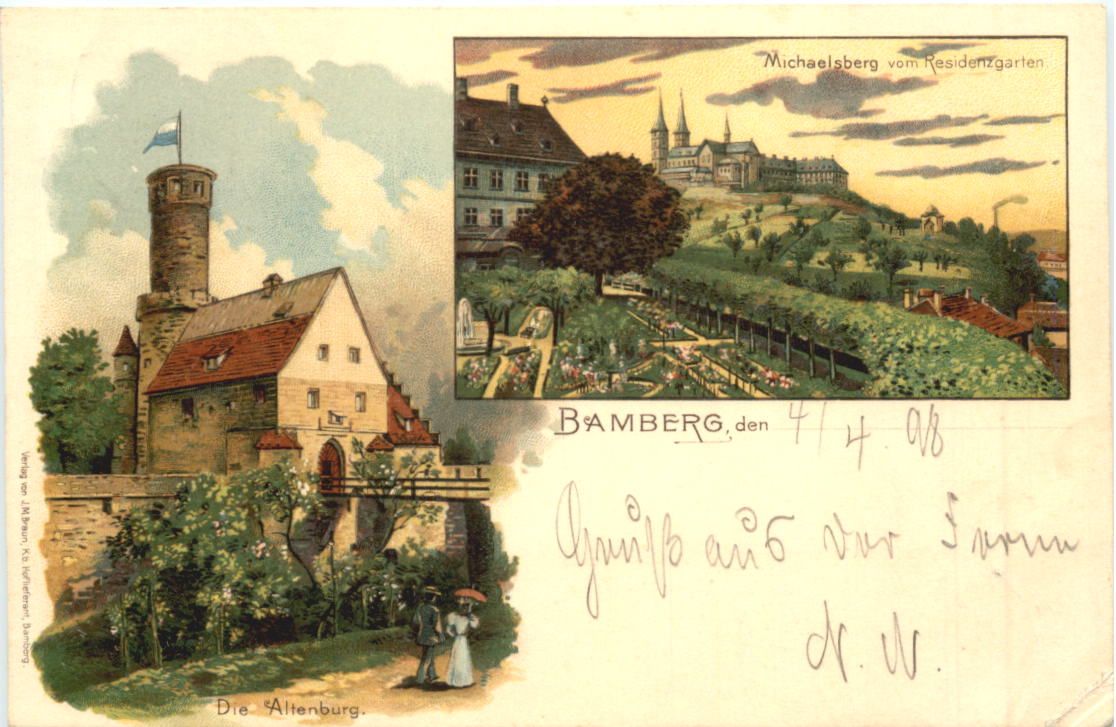 Michaelsberg vom Residenzgarten
BAMBERG, den 4/4.98
Gruß aus der Ferne
N. N.
Die Altenburg.
Verlag von J.M.Braun, K.b. Hoflieferant, Bamberg.